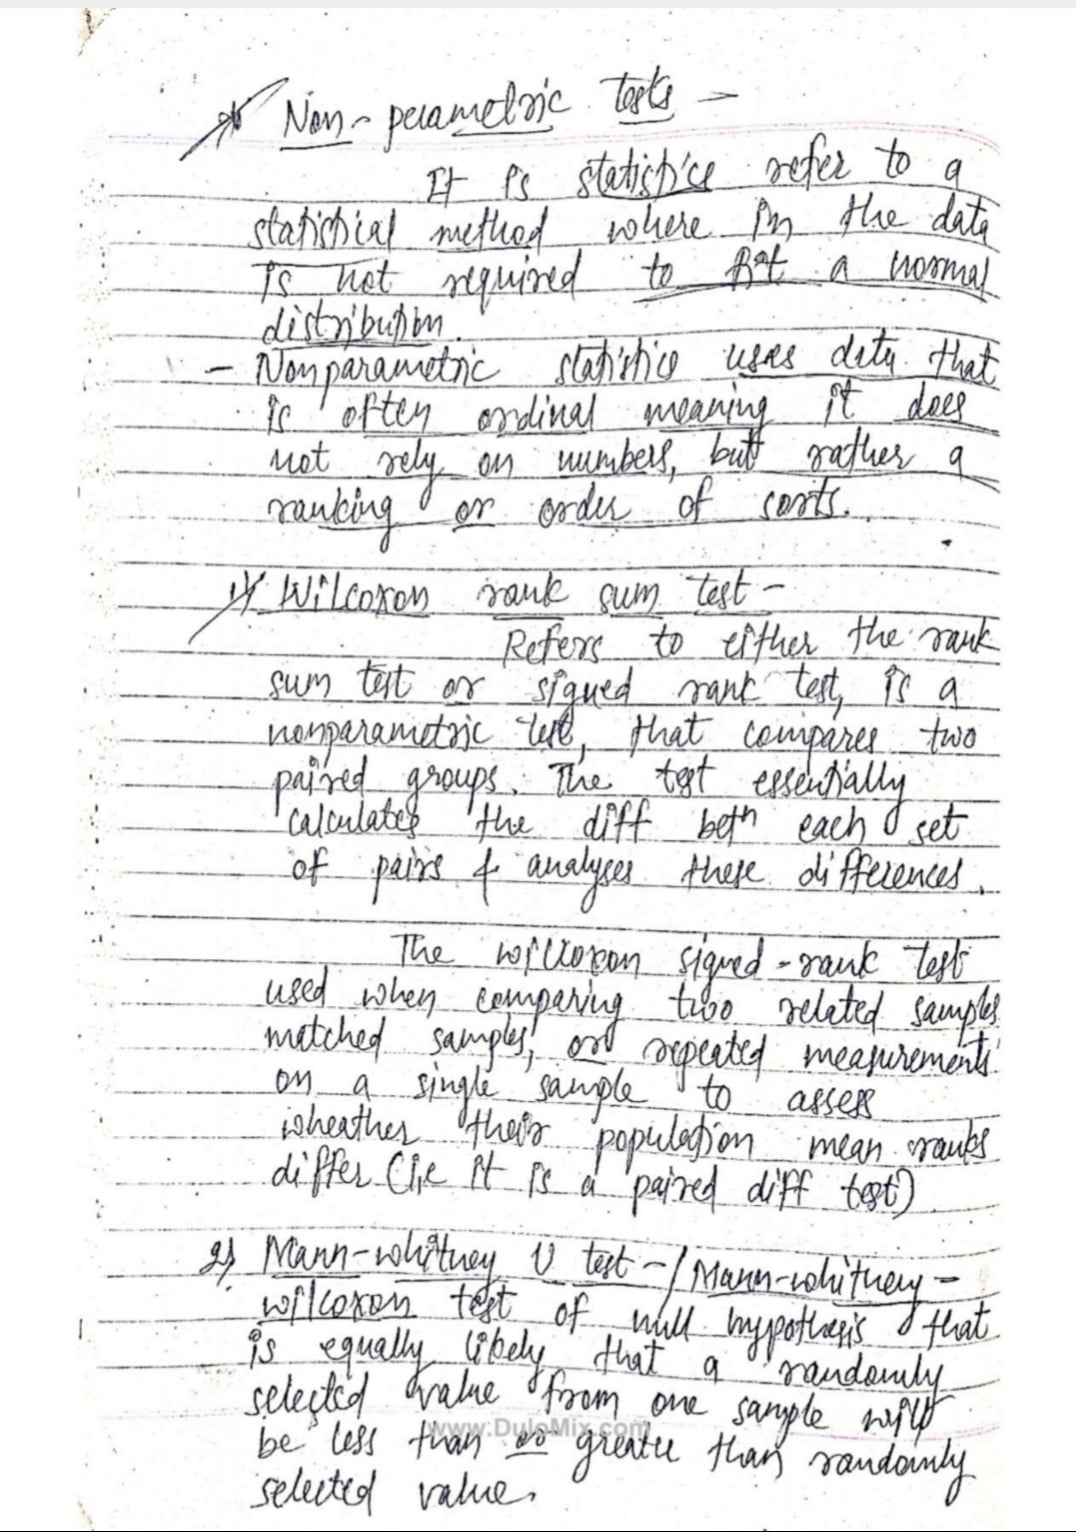 * Non-perametric tests -
It is statistics refer to a
statistical method where in the data
is not required to fit a normal
distribution.
- Nonparametric statistics uses data that
is often ordinal meaning it does
not rely on numbers, but rather a
ranking or order of sorts.
1) Wilcoxon rank sum test -
Refers to either the rank
sum test or signed rank test, is a
nonparametric test, that compares two
paired groups. The test essentially
calculates the diff betn each set
of pairs & analyses these differences.
The wilcoxon signed-rank test
used when comparing two related samples
matched samples, or repeated measurements
on a single sample to assess
wheather their population mean ranks
differ (i.e it is a paired diff test)
2) Mann-whitney U test - / Mann-whitney -
wilcoxon test of null hypothesis that
is equally likely that a randomly
selected value from one sample will
www.DuloMix.com
be less than or greater than randomly
selected value.